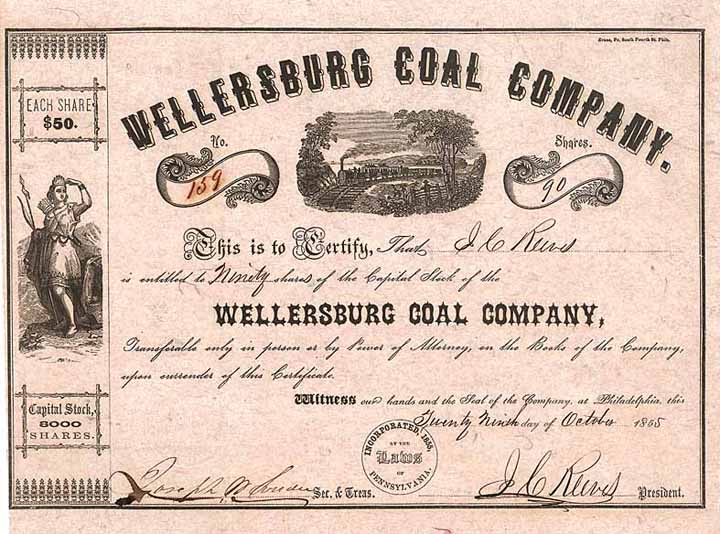 Evans, Pr. South Fourth St. Phila.
WELLERSBURG COAL COMPANY.
EACH SHARE
$50.
No.
159
Shares.
90
This is to Certify, That J C Reeves
is entitled to Ninety shares of the Capital Stock of the
WELLERSBURG COAL COMPANY,
Transferable only in person or by Power of Attorney, on the Books of the Company,
upon surrender of this Certificate.
Witness our hands and the Seal of the Company, at Philadelphia, this
Twenty Ninth day of October 1865
Capital Stock,
8000
SHARES.
INCORPORATED, 1855,
AT THE
Laws
OF
PENNSYLVANIA.
Joseph Sec. & Treas.
J C Reeves President.